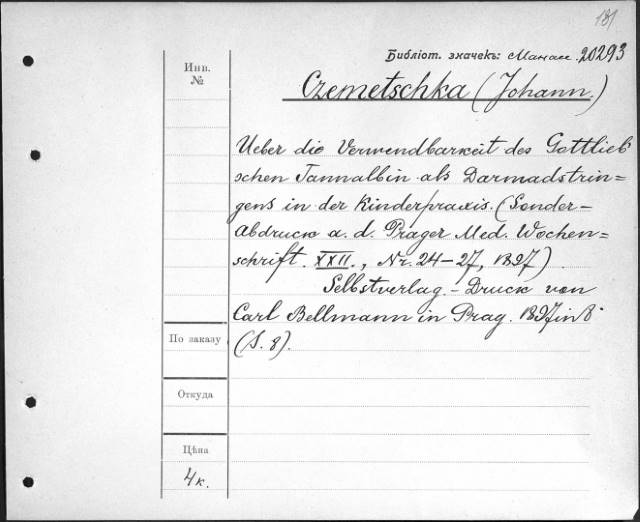 181
Библіот. значекъ: Манас. 20293
Инв.
№
Czemetschka (Johann.)
Ueber die Verwendbarkeit des Gottlieb
schen Tannalbin als Darmadstrin=
gens in der Kinderpraxis. (Sonder-
Abdruck a. d. Prager Med. Wochen=
schrift. XXII., Nr. 24-27, 1897)
Selbstverlag. - Druck von
Carl Bellmann in Prag. 1897 in 8°
По заказу
(S. 8).
Откуда
Цѣна
4 к.